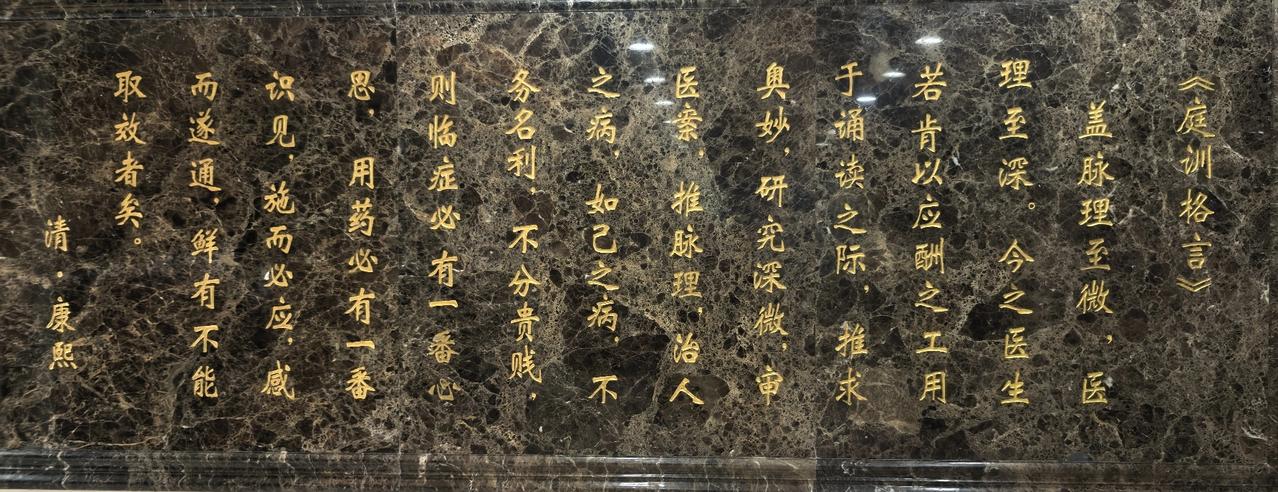 《庭训格言》
盖脉理至微，医
理至深。今之医生
若肯以应酬之工用
于诵读之际，推求
奥妙，研究深微，审
医案，推脉理，治人
之病，如己之病，不
务名利，不分贵贱，
则临症必有一番心
思，用药必有一番
识见，施而必应，感
而遂通，鲜有不能
取效者矣。
清·康熙